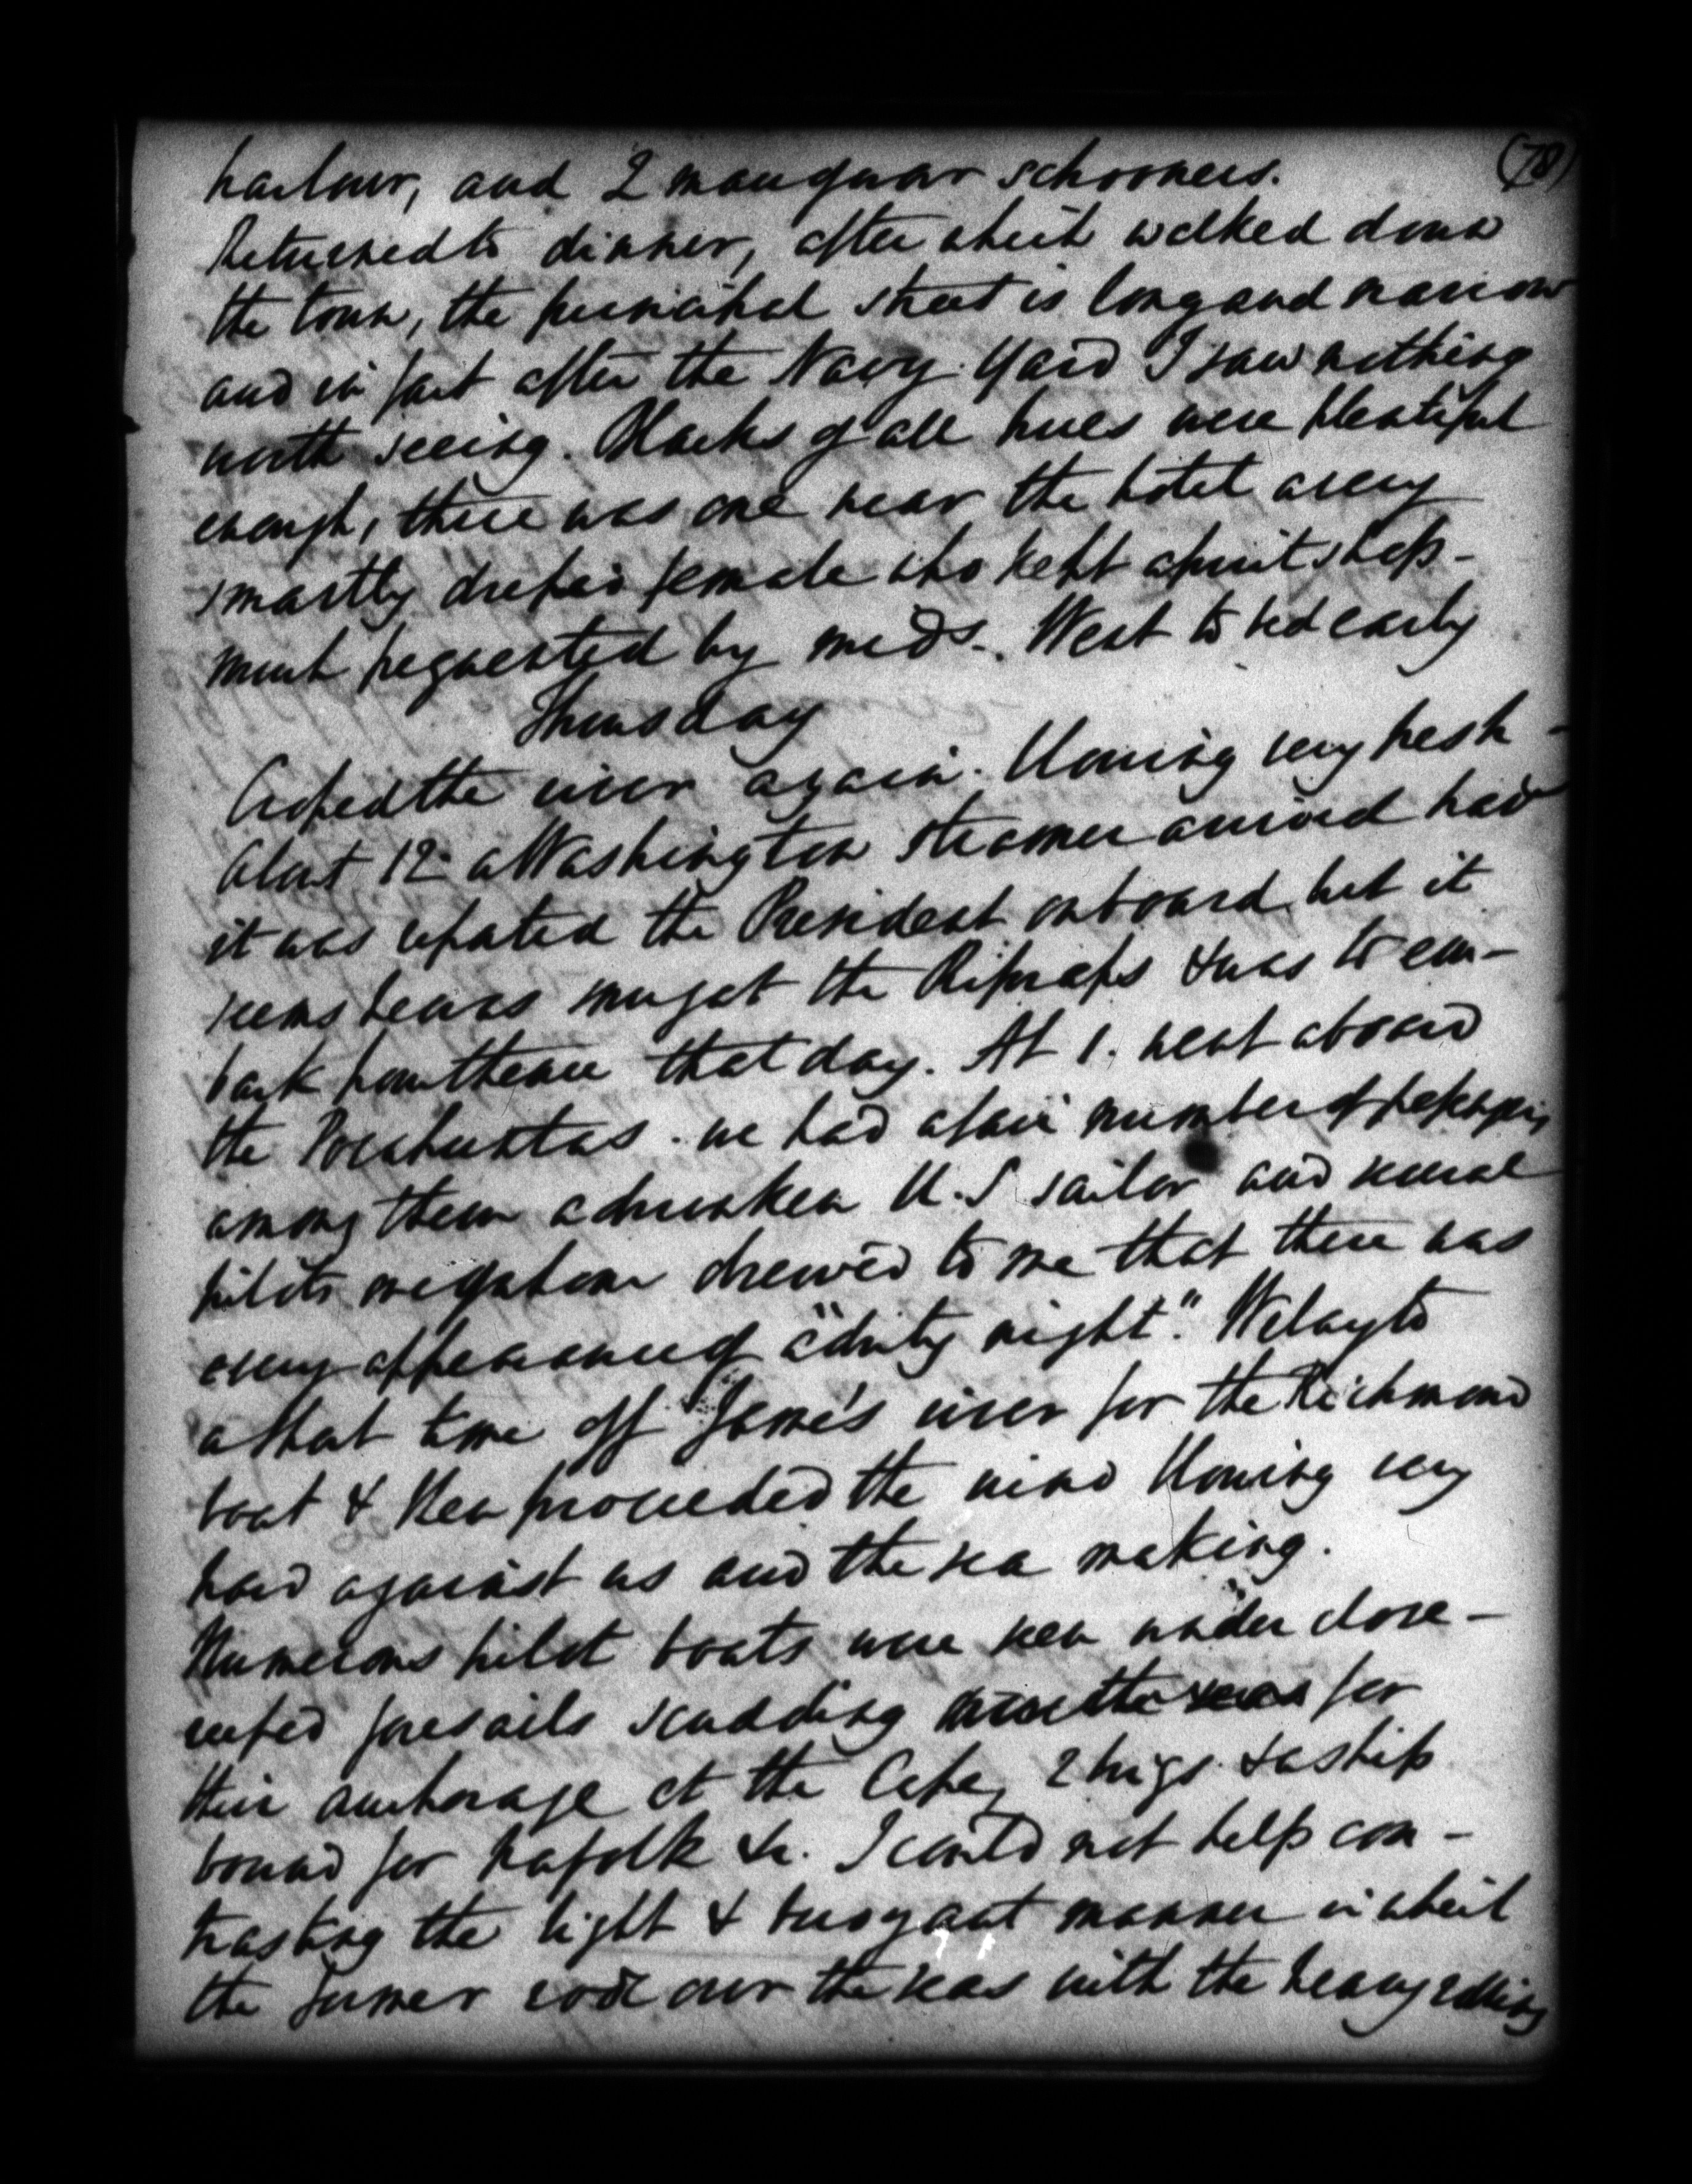 (78)
harbour, and 2 man of war schooners.
Returned to dinner, after which walked down
the town, the principal street is long and narrow
and in fact after the Navy Yard I saw nothing
worth seeing. Blacks of all hues were plentiful
enough, there was one near the hotel a very
smartly dressed female who kept a fruit shop -
much frequented by mids. Went to bed early
Thursday
Crossed the river again. Blowing very fresh -
About 12 a Washington steamer arrived had
it was reported the President on board, but it
seems he was snug at the Ripraps & was to em-
bark from thence that day. At 1. went aboard
the Pocahuntas. we had a fair number of passengers,
among them a drunken U.S sailor and several
pilots one of whom observed to me that there was
every appearance of a "dirty night". We lay to
a short time off Jame's river for the Richmond
boat & then proceeded the wind blowing very
hard against us and the sea making.
Numerous pilot boats were seen under close -
reefed foresails scudding for
their anchorage at the Cape, 2 brigs & a ship
bound for Nafolk &c. I could not help con -
trasting the light & buoyant manner in which
the former rode over the seas with the heavy rolling